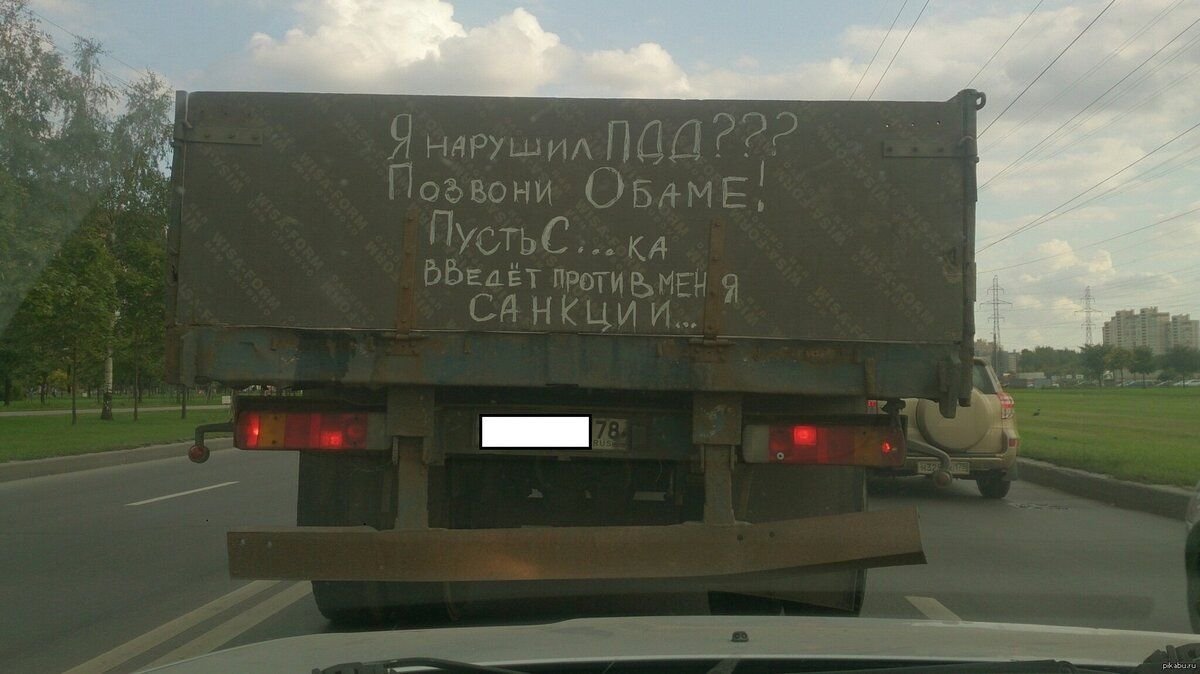 Я НАРУШИЛ ПДД???
ПОЗВОНИ ОБАМЕ!
ПУСТЬ С...КА
ВВЕДЁТ ПРОТИВ МЕНЯ
САНКЦИИ...
78
RUS
pikabu.ru